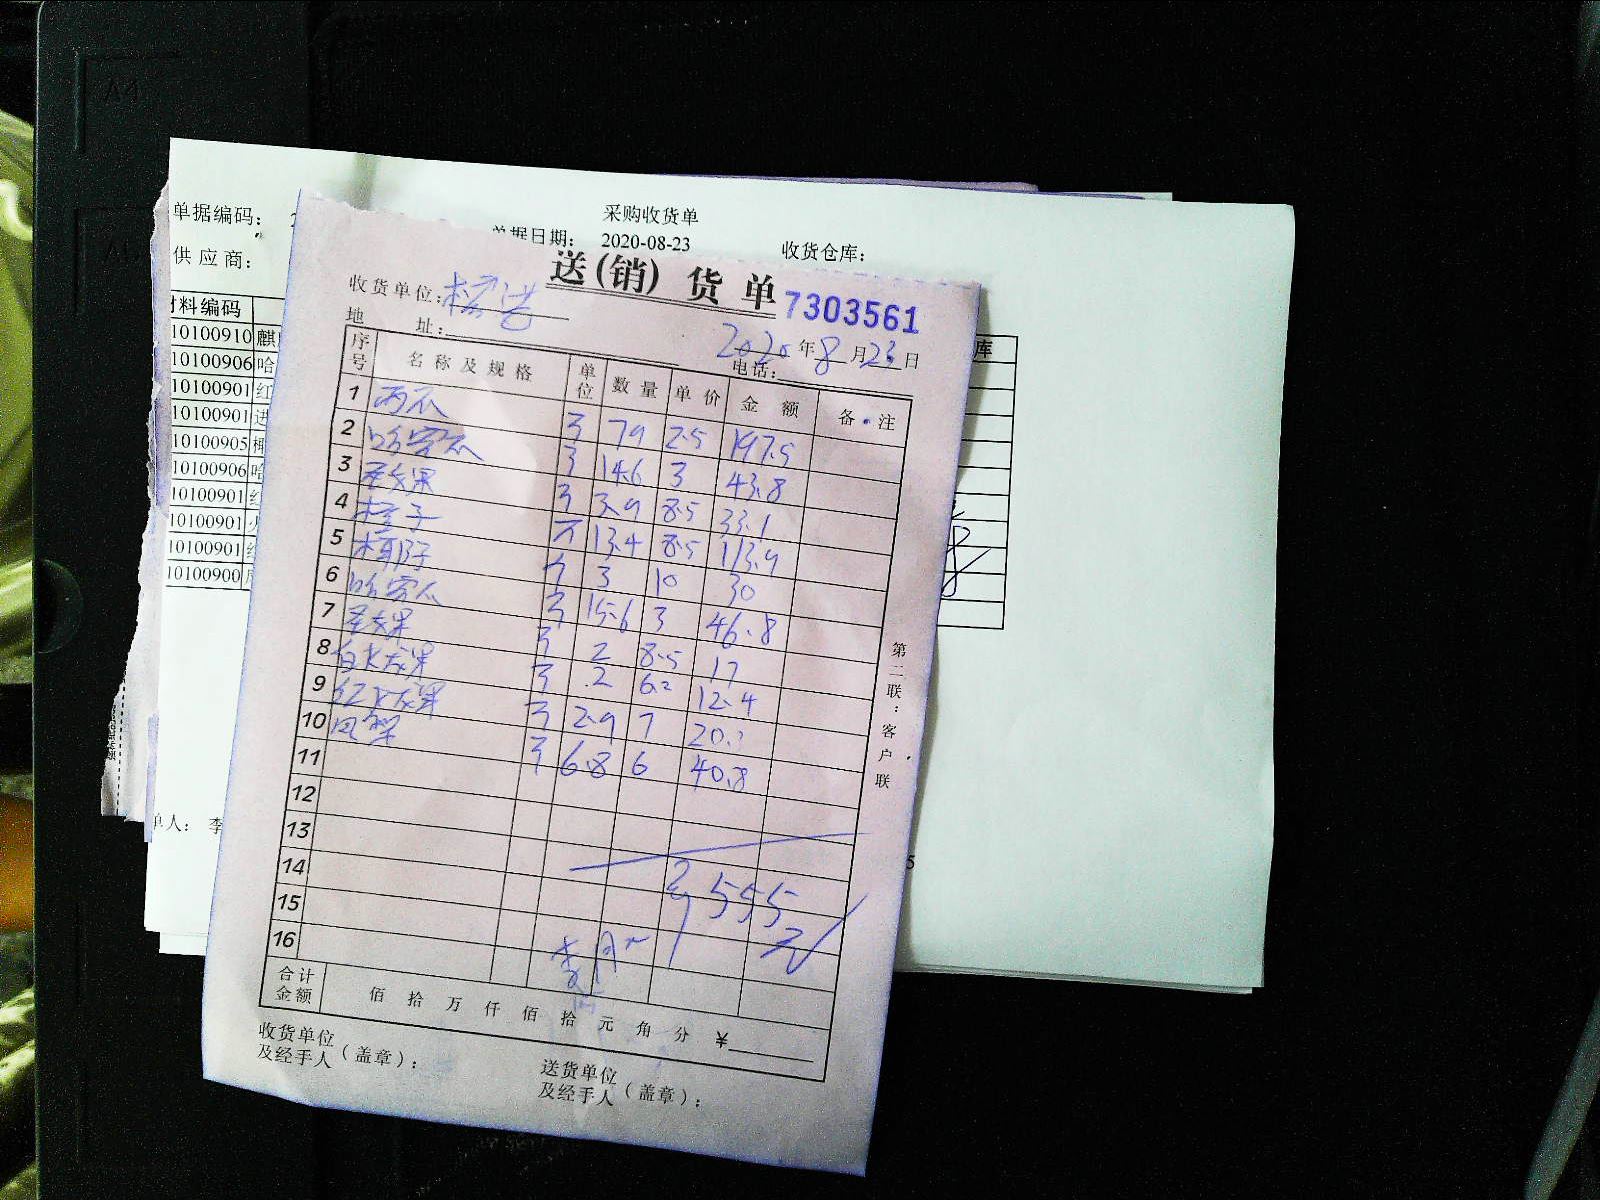 A4
采购收货单
单据编码： 2
单据日期： 2020-08-23
收货仓库：
供应商：
材料编码
库
10100910 麒
10100906 哈
10100901 红
10100901 进
10100905 椰
10100906 哈
10100901
10100901 火
10100901 红
10100900
单人： 李
5
送(销)货单
7303561
收货单位：
2020年8月23日
地 址：
电话：
序号 名称及规格 单位 数量 单价 金额 备注
1 西瓜 斤 79 2.5 197.5
2 哈密瓜 斤 14.6 3 43.8
3 圣女果 斤 3.9 8.5 33.1
4 橙子 斤 13.4 8.5 113.9
5 椰子 个 3 10 30
6 哈密瓜 斤 15.6 3 46.8
7 圣女果 斤 2 8.5 17
8 白火龙果 斤 2 6.2 12.4
9 红火龙果 斤 2.9 7 20.
10 凤梨 斤 6.8 6 40.8
11
12
13
14
15
16
555元
李月
合计金额 佰 拾 万 仟 佰 拾 元 角 分 ￥
收货单位及经手人（盖章）：
送货单位及经手人（盖章）：
第二联：客户联